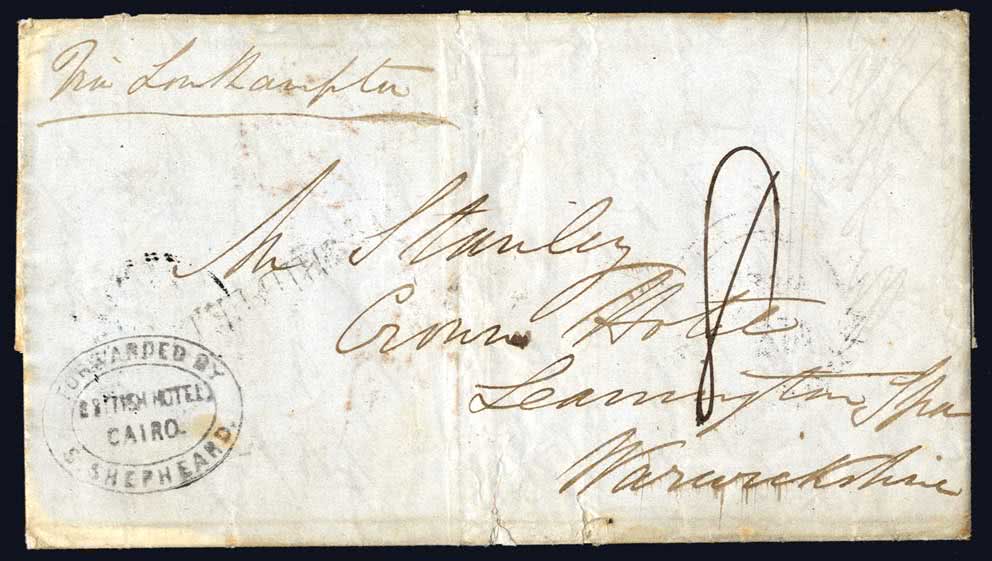 Via Southampton
Mr Stanley
Crown Hotel
Leamington Spa
Warwickshire
FORWARDED BY
BRITISH HOTEL
CAIRO.
S. SHEPHEARD.